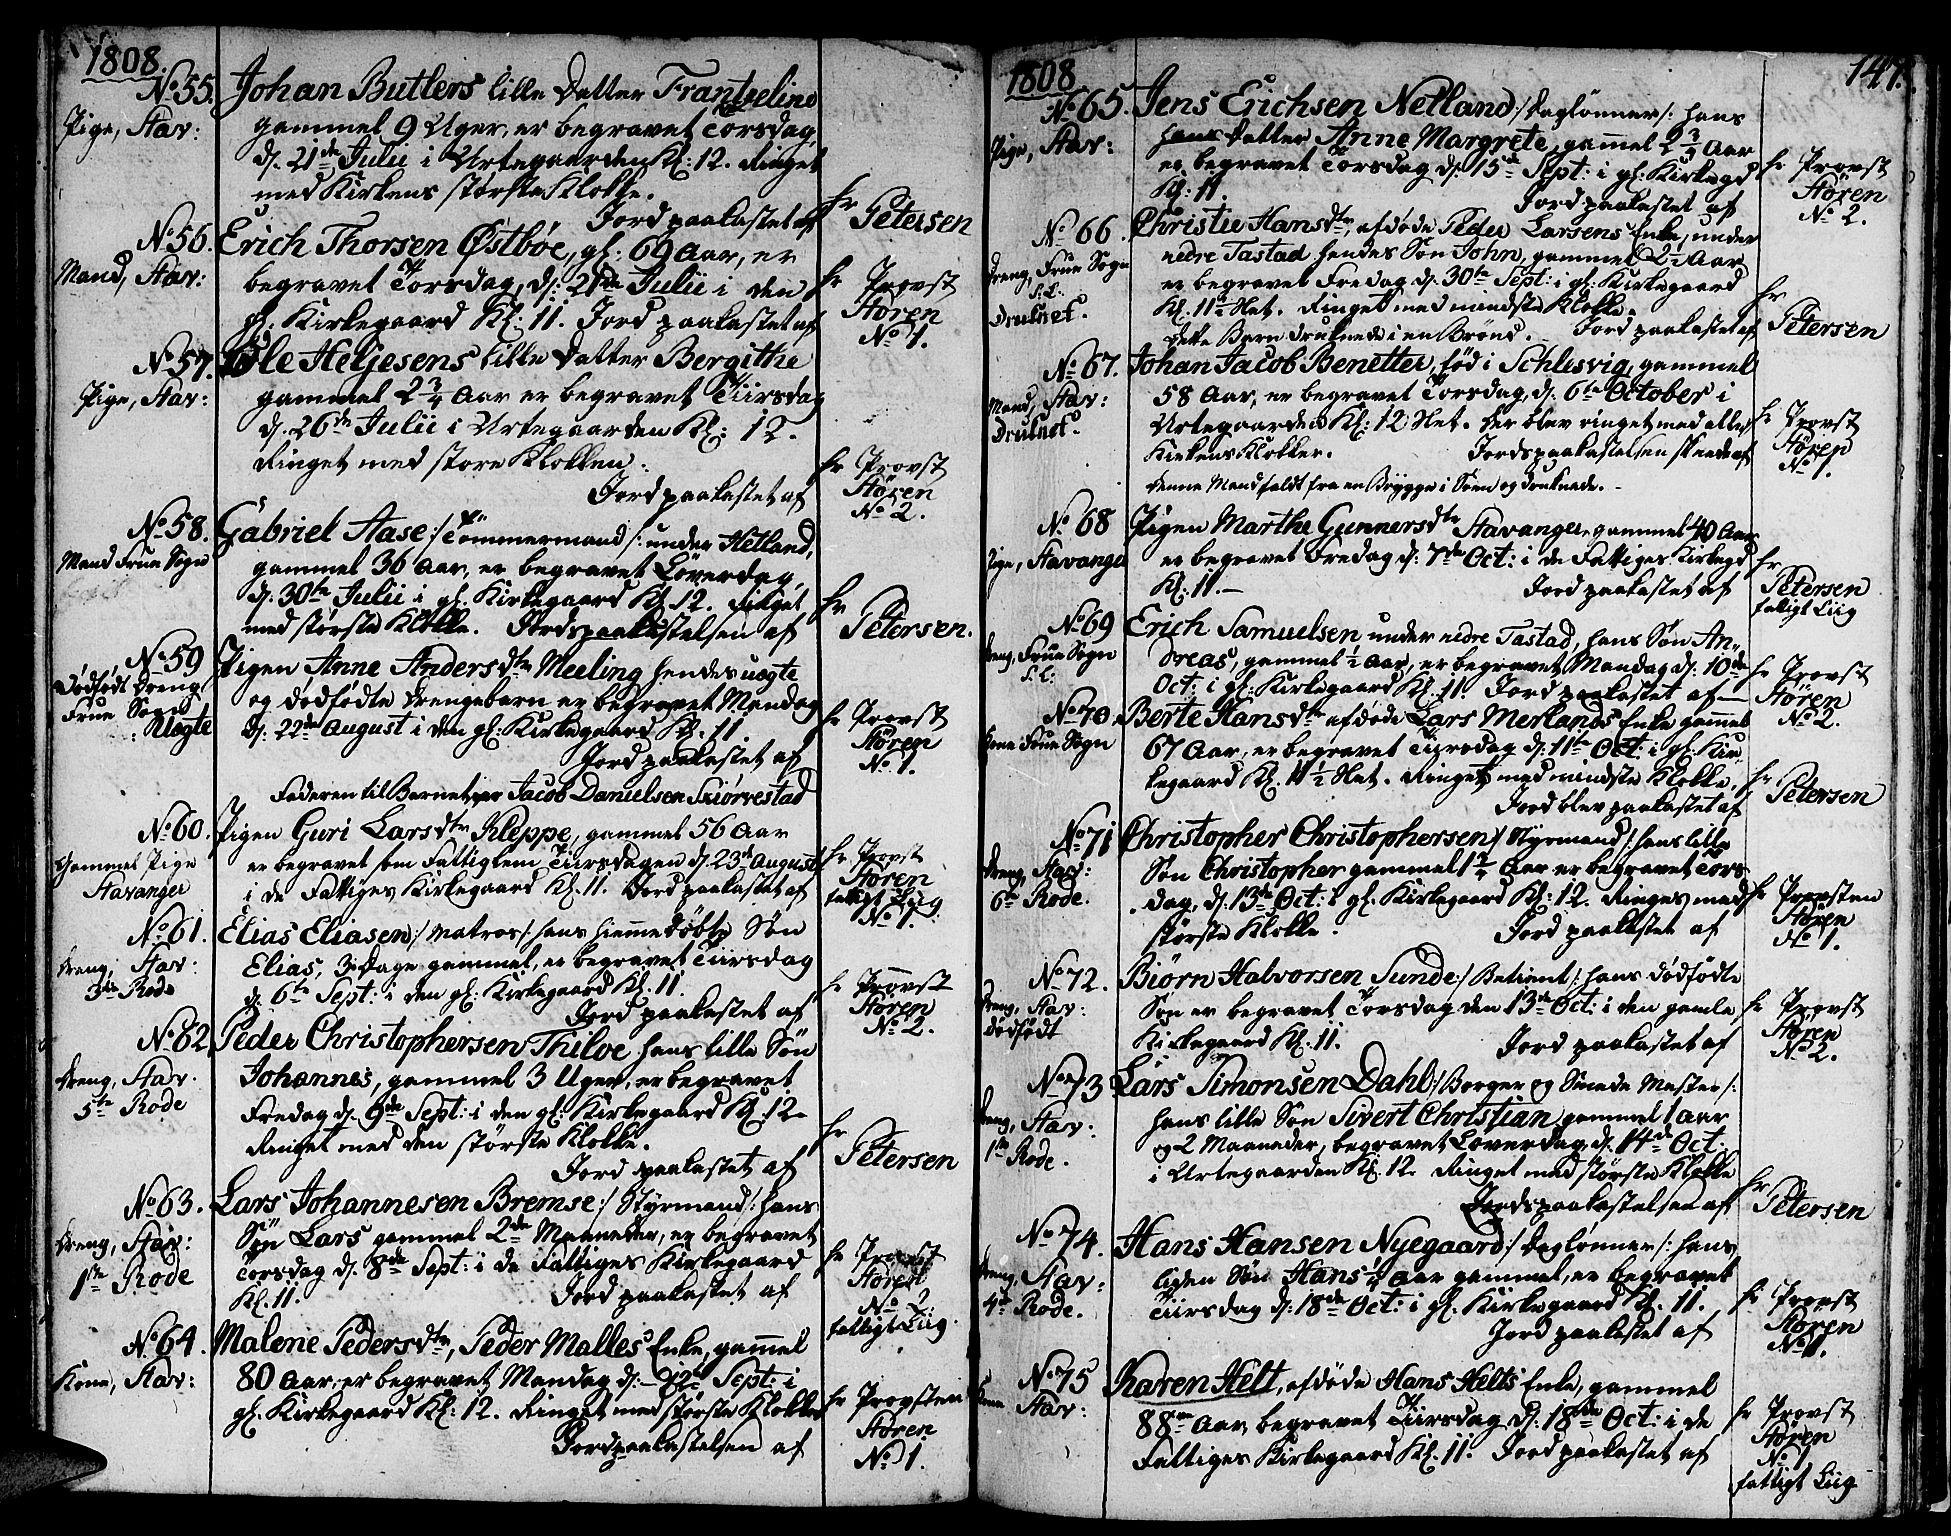 1808.
No 55. Johan Butlers lille Datter Frantzeline
Pige, Stav: gammel 9 Uger, er begravet Torsdag
d. 21de Julii i Urtegaarden Kl: 12. Ringet
med Kirkens største Klokke.
Jord paakastet af hr Petersen
No 56. Erich Thorsen Østbøe, gl: 69 Aar, er
Mand, Stav: begravet Torsdag, d: 21de Julii i den
gl: Kirkegaard Kl: 11. Jord paakastet af
hr Provst Støren No 1.
No 57. Ole Heljesens lille Datter Bergithe
Pige, Stav: gammel 2 3/4 Aar er begravet Tiirsdag
d. 26de Julii i Urtegaarden Kl: 12.
Ringet med store Klokken.
Jord paakastet af
hr Provst Støren No 2.
No 58. Gabriel Aase /: Tömmermand :/ under Hetland,
Mand Frue Sogn gammel 36 Aar, er begravet Löverdag,
d. 30te Julii i gl. Kirkegaard Kl. 12. Ringet
med største Klokke. Jordspaakastelsen af
hr Petersen.
No 59 Pigen Anne Andersdtr Meeling hendes uægte
Dödfödt Dreng og dødfødte Drengebarn er begravet Mandag
Frue Sogn
Uægte d. 22de August i den gl: Kirkegaard Kl. 11
Jord paakastet af
hr Provst Støren No 1.
Faderen til Barnet er Jacob Danielsen Skiörvestad
No 60. Pigen Guri Larsdtr Kleppe, gammel 56 Aar
Gammel Pige er begravet som Fattiglem Tiirsdagen d. 23de August
Stavanger i de Fattiges Kirkegaard Kl. 11. Jord paakastet af
hr Provst Støren
fattigt Liig
No 1.
No 61. Elias Eliasen /: Matros :/ hans hiemmedøbte Søn
Dreng, Stav: Elias, 3 Dage gammel, er begravet Tiirsdag
3die Rode d. 6te Sept: i den gl: Kirkegaard Kl. 11.
Jord paakastet af
hr Provst Støren No 2.
No 62 Peder Christophersen Thiloe hans lille Søn
Dreng, Stav. Johannes, gammel 3 Uger, er begravet
5te Rode Fredag d. 9de Sept: i den gl: Kirkegaard Kl. 12.
Ringet med den største Klokke.
Jord paakastet af
hr Petersen
No 63. Lars Johannesen Bremse /: Styrmand :/ hans
Dreng, Stav: Søn Lars gammel 2de Maaneder, er begravet
1ste Rode Torsdag d. 8de Sept: i de Fattiges Kirkegaard
Kl. 11. Jord paakastet af
hr Provst Støren
No 2
fattigt Liig.
No 64. Malene Pedersdtr, Peder Malles Enke, gammel
Kone, Stav: 80 Aar, er begravet Mandag d. 12te Sept: i
gl. Kirkegaard Kl: 12. Ringet med største Klokke
Jordpaakastelsen af
hr Provsten Støren No 1.
1808
147.
No 65. Jens Erichsen Netland /: Daglønner :/ hans
Pige, Stav: hans Datter Anne Margrete, gammel 2 3/4 Aar
er begravet Torsdag d. 15de Sept: i gl: Kirkegd
Kl: 11. Jord paakastet af
hr Provst Støren No 2.
No 66. Christie Hansdtr, afdøde Peder Larsens Enke, under
Dreng, Frue Sogn nedre Tastad hendes Søn John, gammel 2 1/2 Aar
S. L.
Druknet. er begravet Fredag d. 30te Sept: i gl: Kirkegaard
Kl. 11 1/2 Slet. Ringet med mindste Klokke.
Dette Barn druknede i en Brønd. Jord paakastet af
hr Petersen
No 67. Johan Jacob Benetter, föd i Schlesvig, gammel
Mand, Stav: 58 Aar, er begravet Torsdag, d. 6te October i
Druknet. Urtegaarden Kl: 12 Slet. Der blev ringet med alle
Kirkens Klokker. Jordspaakastelsen skeede af
hr Provst Støren No 1.
Denne Mand faldt fra en Brygge i Søen og druknede.
No 68 Pigen Marthe Gunnersdtr Stavanger, gammel 40 Aar
Pige, Stavanger er begravet Fredag d. 7de Oct: i de Fattiges Kirkegd
Kl. 11. Jord paakastet af
hr Petersen
fattigt Liig
No 69 Erich Samuelsen under nedre Tastad, hans Søn An-
Dreng, Frue Sogn dreas, gammel 1/2 Aar, er begravet Mandag d. 10de
S. L. Oct: i gl: Kirkegaard Kl. 11. Jord paakastet af
hr Provst Støren No 2.
No 70. Berte Hansdtr afdøde Lars Merlands Enke gammel
Kone Frue Sogn 67 Aar, er begravet Tiirsdag d. 11te Oct: i gl: Kir-
kegaard Kl. 11 1/2 Slet. Ringet med mindste Klokke.
Jord blev paakastet af
hr Petersen
No 71 Christopher Christophersen /: Styrmand :/ hans lille
Dreng, Stav: Søn Christopher gammel 1 3/4 Aar er begravet Tors-
6te Rode. dag, d. 13de Oct: i gl. Kirkegaard Kl: 12. Ringet med
største Klokke. Jord paakastet af
hr Provsten Støren No 1.
No 72. Biörn Halvorsen Sunde /: Betient :/ hans dödfödte
Dreng, Stav: Søn er begravet Torsdag den 13de Oct: i den gamle
dödfödt Kirkegaard Kl. 11. Jord paakastet af
hr Provst Støren No 2.
No 73 Lars Simonsen Dahl /: Borger og Smede Mester :/
Dreng, Stav: hans lille Søn Sivert Christian gammel 1 Aar
1ste Rode. og 2 Maaneder, begravet Løverdag, d. 14de Oct:
i Urtegaarden Kl. 12. Ringet med største Klokke
Jordspaakastelsen af
hr Petersen
No 74. Hans Hansen Nyegaard /: Daglønner :/ hans
Dreng, Stav: liden Søn Hans 1/2 Aar gammel, er begravet
4de Rode. Tiirsdag d. 18de Oct: i gl. Kirkegaard Kl. 11.
Jord paakastet af
hr Provst Støren No 1.
No 75 Karen Helt, afdøde Hans Helts Enke, gammel
Kone Stav: 88 Aar, begravet Tiirsdag d. 18de Oct: i de
Fattiges Kirkegaard Kl. 11. Jord paakastet af
hr Provst Støren
No 1
fattigt Liig